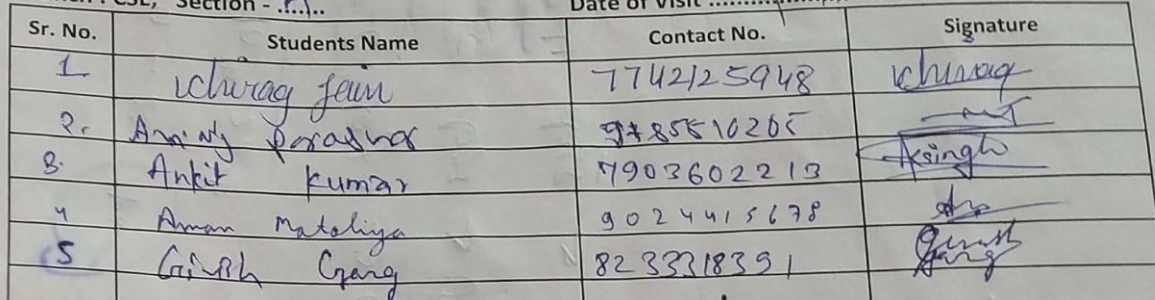 CSE, Section - ........
Date of Visit ..................
Sr. No. Students Name Contact No. Signature
1 Chirag Jain 7742125948 Chirag
2. Parashar
3. Ankit Kumar 7903602213 Aksingh
4 Aman Mataliya 9024415678
5 Girish Garg 8233318391 Girish Garg